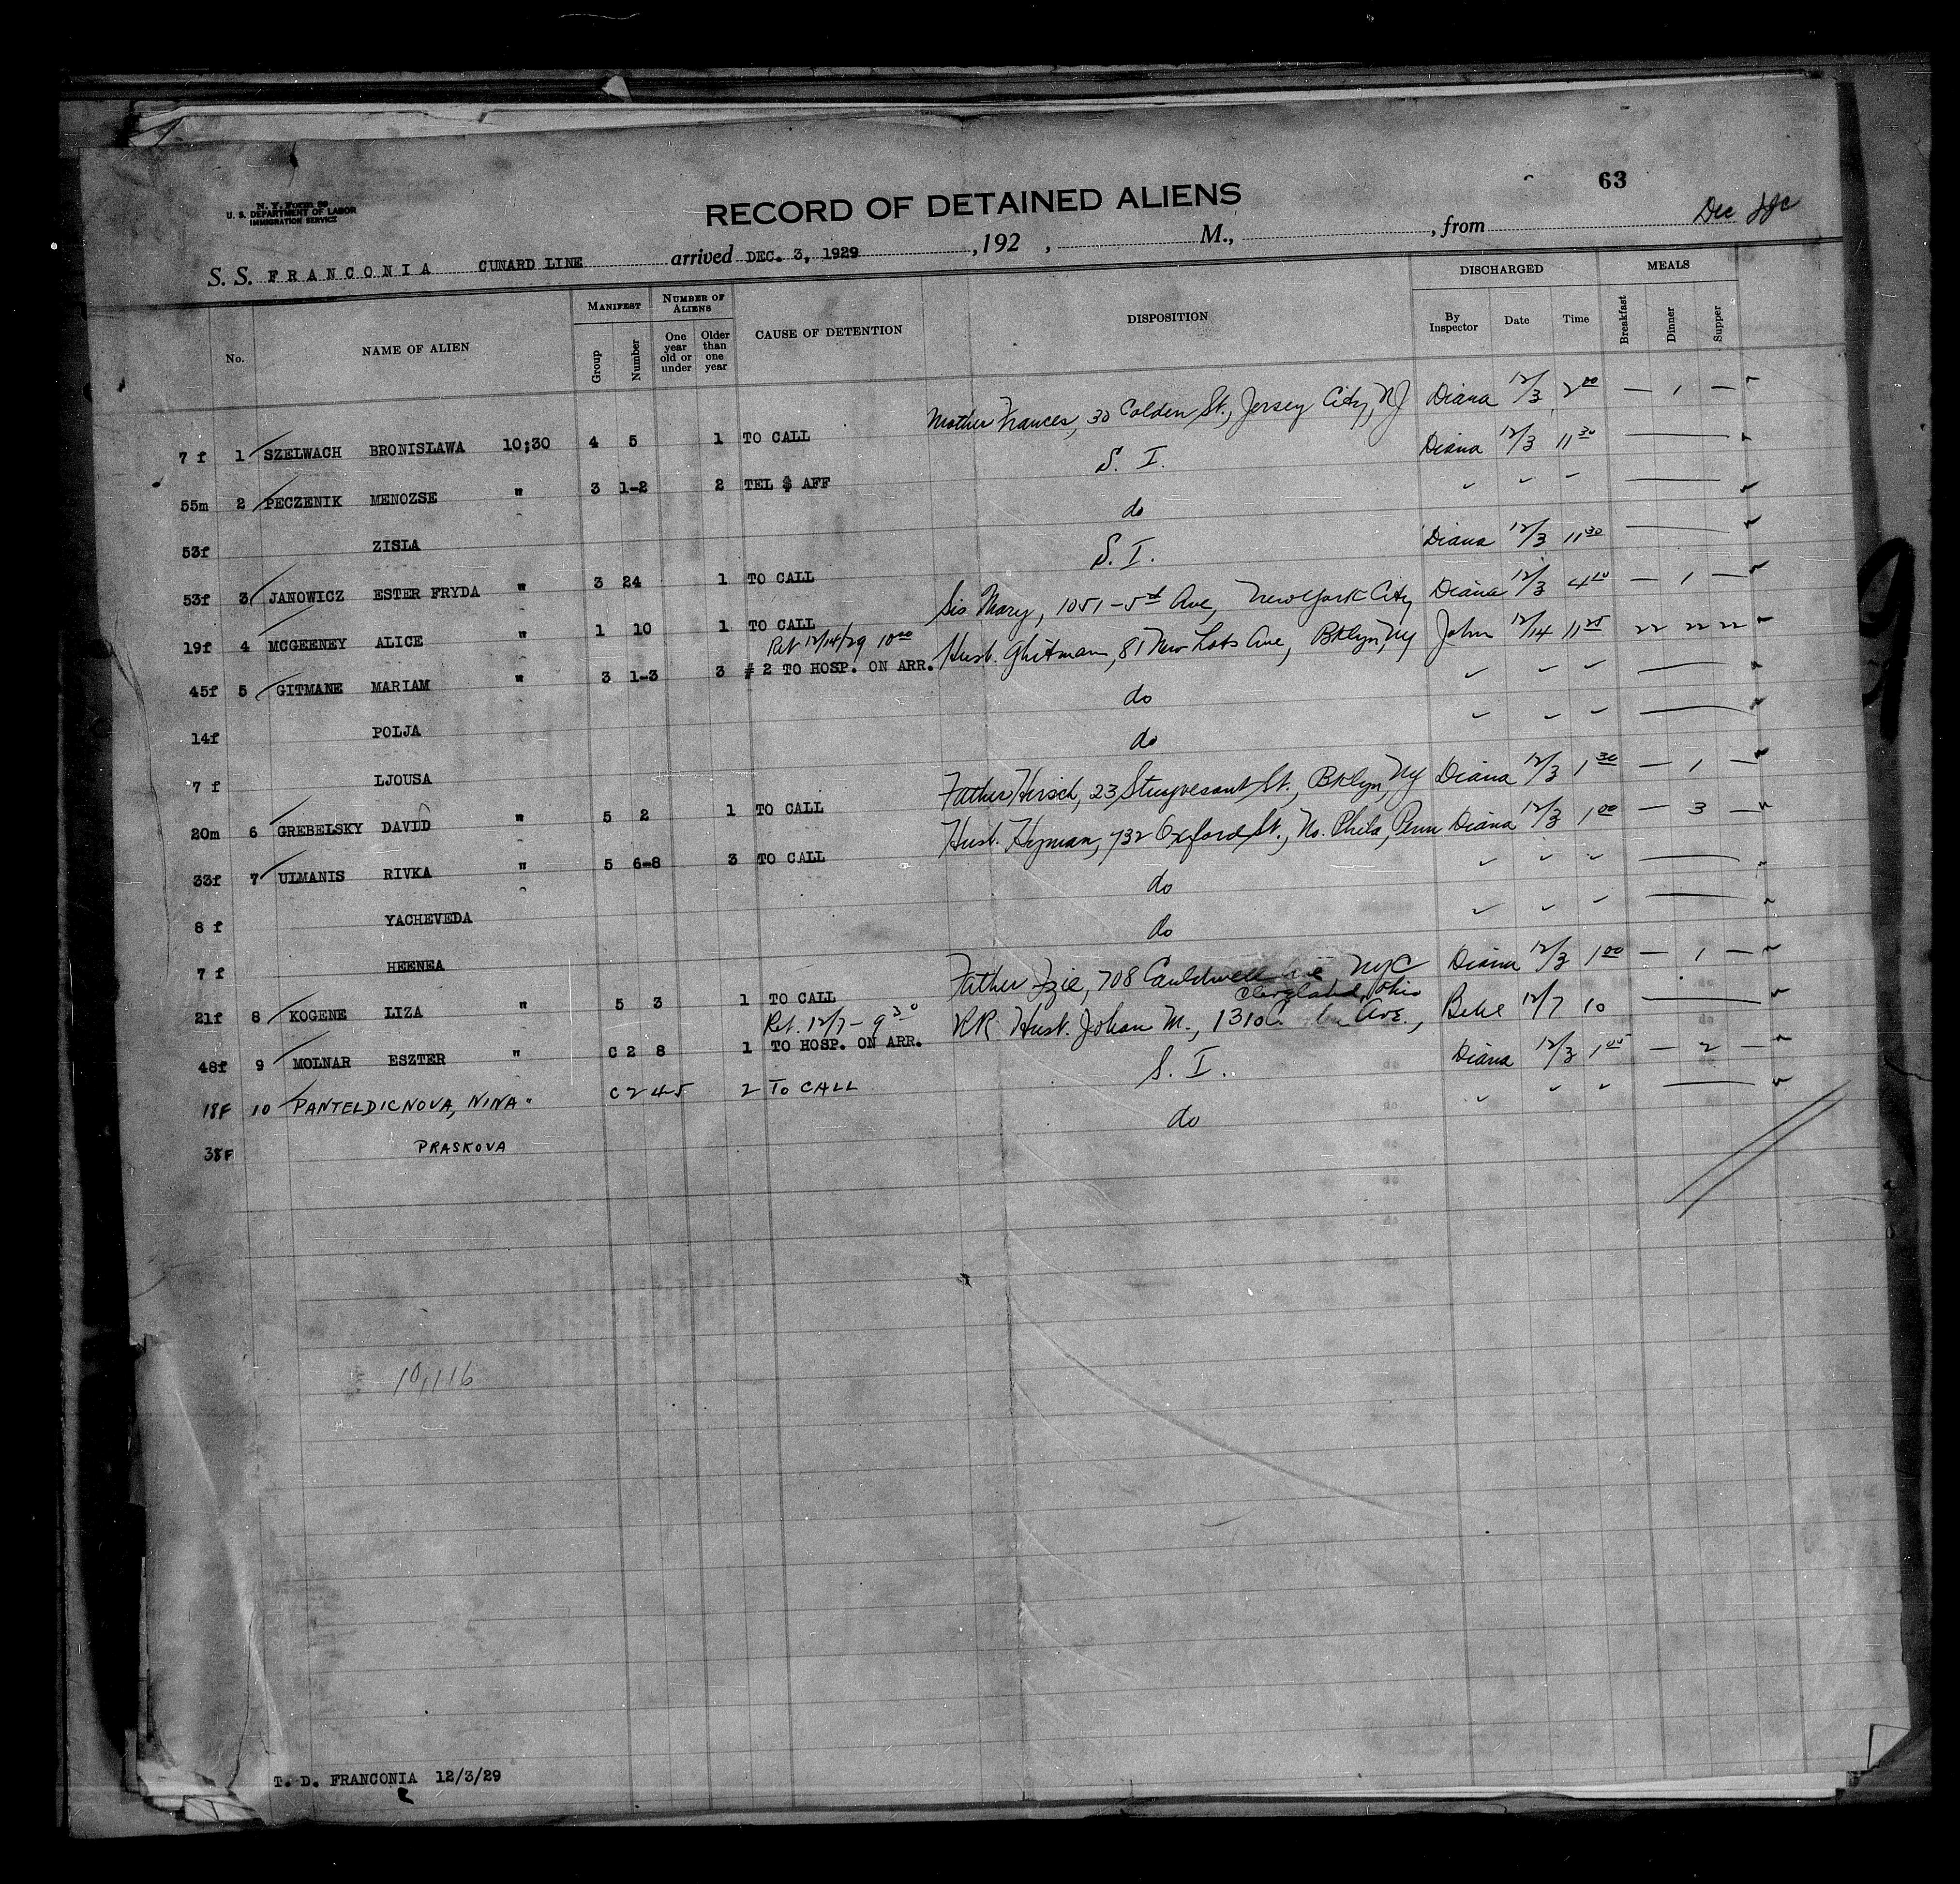 63
N. Y. Form 99
U. S. DEPARTMENT OF LABOR
IMMIGRATION SERVICE
RECORD OF DETAINED ALIENS
S. S. FRANCONIA CUNARD LINE arrived DEC. 3, 1929 , 192 , M., , from Dec
No. NAME OF ALIEN MANIFEST Group Number NUMBER OF ALIENS One year old or under Older than one year CAUSE OF DETENTION DISPOSITION DISCHARGED By Inspector Date Time MEALS Breakfast Dinner Supper
7 f 1 SZELWACH BRONISLAWA 10;30 4 5 1 TO CALL Mother Frances, 30 Colden St., Jersey City, NJ Diana 12/3 2 00 — 1 —
55m 2 PECZENIK MENOZSE " 3 1-2 2 TEL $ AFF S. I. Diana 12/3 11 30
53f ZISLA do
53f 3 JANOWICZ ESTER FRYDA " 3 24 1 TO CALL S. I. Diana 12/3 11 30
19f 4 MCGEENEY ALICE " 1 10 1 TO CALL Sis Mary, 1051-5th Ave, New York City Diana 12/3 — 1 —
Ret 12/14/29 10 00
45f 5 GITMANE MARIAM " 3 1-3 3 # 2 TO HOSP. ON ARR. Husb. Ghitman, 81 New Lots Ave, Bklyn, NY John 12/14 11 25 22 22 22
14f POLJA do
7 f LJOUSA do
20m 6 GREBELSKY DAVID " 5 2 1 TO CALL Father Hirsch, 23 Stuyvesant St., Bklyn, NY Diana 12/3 1 30 — 1 —
33f 7 ULMANIS RIVKA " 5 6-8 3 TO CALL Husb. Hyman, 732 Oxford St., No. Phila, Penn Diana 12/3 1 00 — 3 —
8 f YACHEVEDA do
7 f HEENEA do
21f 8 KOGENE LIZA " 5 3 1 TO CALL Father Izie, 708 Cauldwell Ave NYC Diana 12/3 1 00 — 1 —
Ret. 12/7 - 9 30 Cleveland, Ohio
48f 9 MOLNAR ESZTER " C 2 8 1 TO HOSP. ON ARR. RR Husb. Johan M., 1310 Ave., 12/7 10
18F 10 PANTELDICNOVA, NINA " C 2 45 2 TO CALL S. I. Diana 12/3 1 05 — 2 —
38F PRASKOVA do
10,116
T. D. FRANCONIA 12/3/29